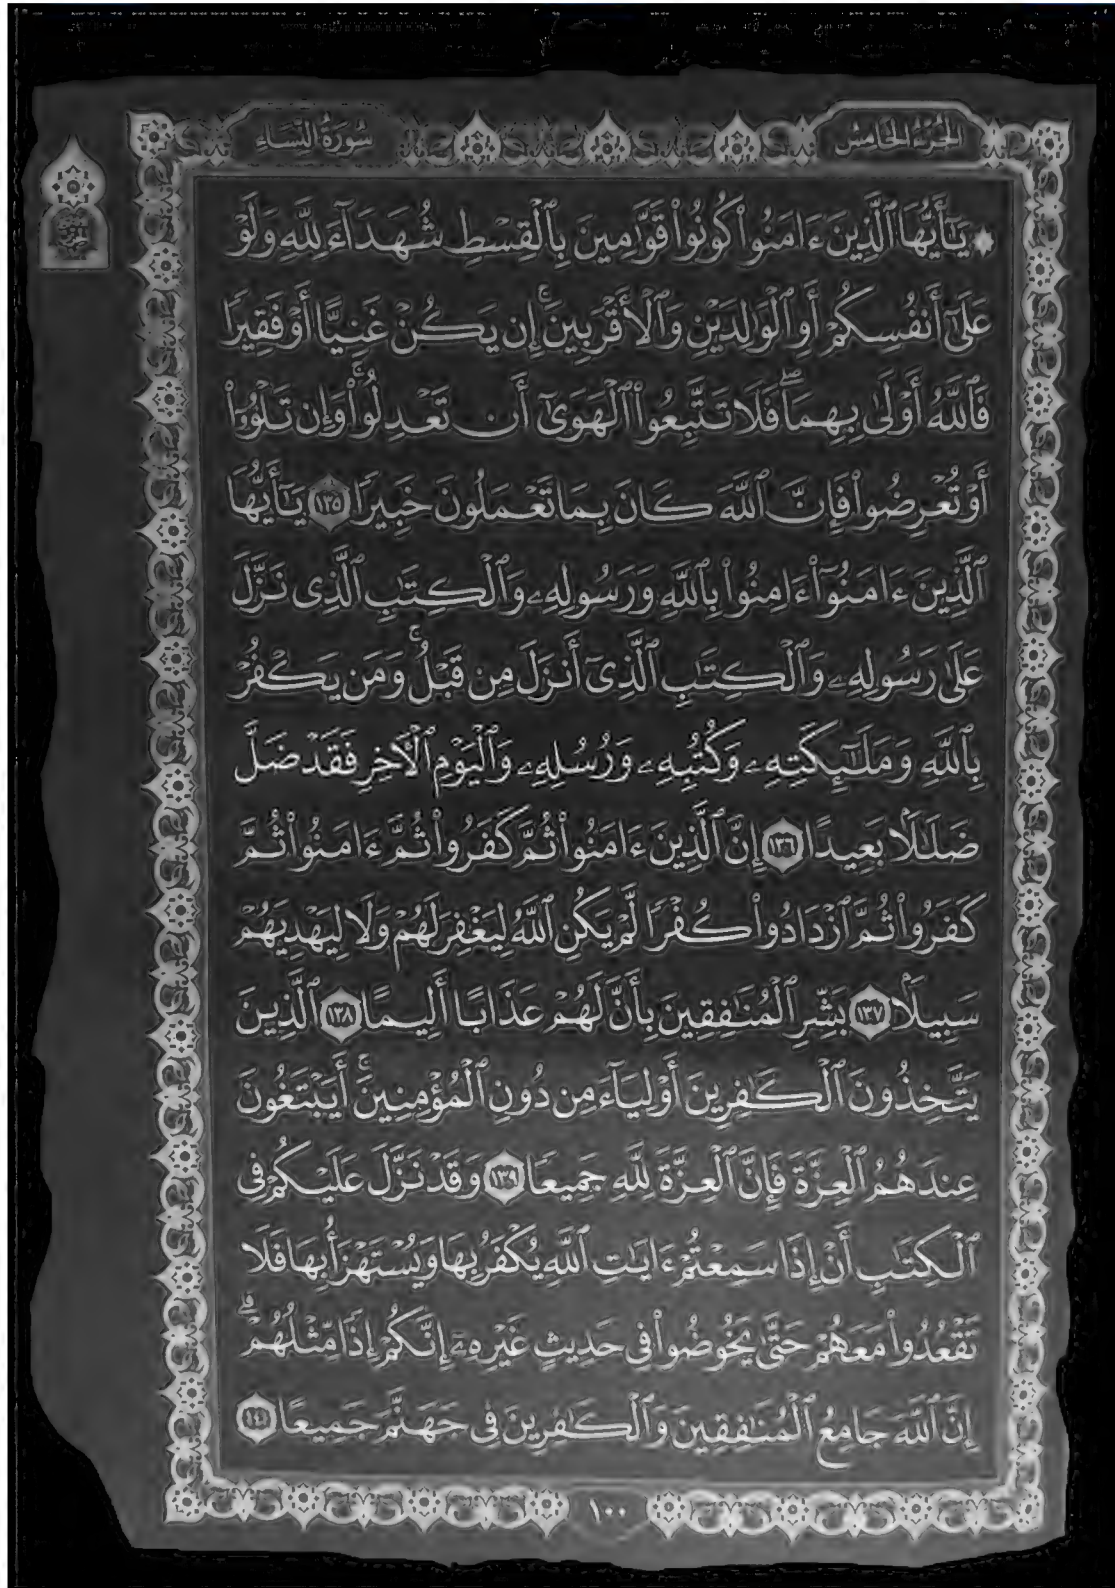 سُورَةُ النِّسَاءِ
الجُزْءُ الخَامِسُ
۞ يَٰٓأَيُّهَا ٱلَّذِينَ ءَامَنُوا۟ كُونُوا۟ قَوَّٰمِينَ بِٱلْقِسْطِ شُهَدَآءَ لِلَّهِ وَلَوْ
عَلَىٰٓ أَنفُسِكُمْ أَوِ ٱلْوَٰلِدَيْنِ وَٱلْأَقْرَبِينَ ۚ إِن يَكُنْ غَنِيًّا أَوْ فَقِيرًا
فَٱللَّهُ أَوْلَىٰ بِهِمَا ۖ فَلَا تَتَّبِعُوا۟ ٱلْهَوَىٰٓ أَن تَعْدِلُوا۟ ۚ وَإِن تَلْوُۥٓا۟
أَوْ تُعْرِضُوا۟ فَإِنَّ ٱللَّهَ كَانَ بِمَا تَعْمَلُونَ خَبِيرًا ١٣٥ يَٰٓأَيُّهَا
ٱلَّذِينَ ءَامَنُوٓا۟ ءَامِنُوا۟ بِٱللَّهِ وَرَسُولِهِۦ وَٱلْكِتَٰبِ ٱلَّذِى نَزَّلَ
عَلَىٰ رَسُولِهِۦ وَٱلْكِتَٰبِ ٱلَّذِىٓ أَنزَلَ مِن قَبْلُ ۚ وَمَن يَكْفُرْ
بِٱللَّهِ وَمَلَٰٓئِكَتِهِۦ وَكُتُبِهِۦ وَرُسُلِهِۦ وَٱلْيَوْمِ ٱلْءَاخِرِ فَقَدْ ضَلَّ
ضَلَٰلًۢا بَعِيدًا ١٣٦ إِنَّ ٱلَّذِينَ ءَامَنُوا۟ ثُمَّ كَفَرُوا۟ ثُمَّ ءَامَنُوا۟ ثُمَّ
كَفَرُوا۟ ثُمَّ ٱزْدَادُوا۟ كُفْرًا لَّمْ يَكُنِ ٱللَّهُ لِيَغْفِرَ لَهُمْ وَلَا لِيَهْدِيَهُمْ
سَبِيلًۢا ١٣٧ بَشِّرِ ٱلْمُنَٰفِقِينَ بِأَنَّ لَهُمْ عَذَابًا أَلِيمًا ١٣٨ ٱلَّذِينَ
يَتَّخِذُونَ ٱلْكَٰفِرِينَ أَوْلِيَآءَ مِن دُونِ ٱلْمُؤْمِنِينَ ۚ أَيَبْتَغُونَ
عِندَهُمُ ٱلْعِزَّةَ فَإِنَّ ٱلْعِزَّةَ لِلَّهِ جَمِيعًا ١٣٩ وَقَدْ نَزَّلَ عَلَيْكُمْ فِى
ٱلْكِتَٰبِ أَنْ إِذَا سَمِعْتُمْ ءَايَٰتِ ٱللَّهِ يُكْفَرُ بِهَا وَيُسْتَهْزَأُ بِهَا فَلَا
تَقْعُدُوا۟ مَعَهُمْ حَتَّىٰ يَخُوضُوا۟ فِى حَدِيثٍ غَيْرِهِۦٓ ۚ إِنَّكُمْ إِذًا مِّثْلُهُمْ ۗ
إِنَّ ٱللَّهَ جَامِعُ ٱلْمُنَٰفِقِينَ وَٱلْكَٰفِرِينَ فِى جَهَنَّمَ جَمِيعًا ١٤٠
١٠٠